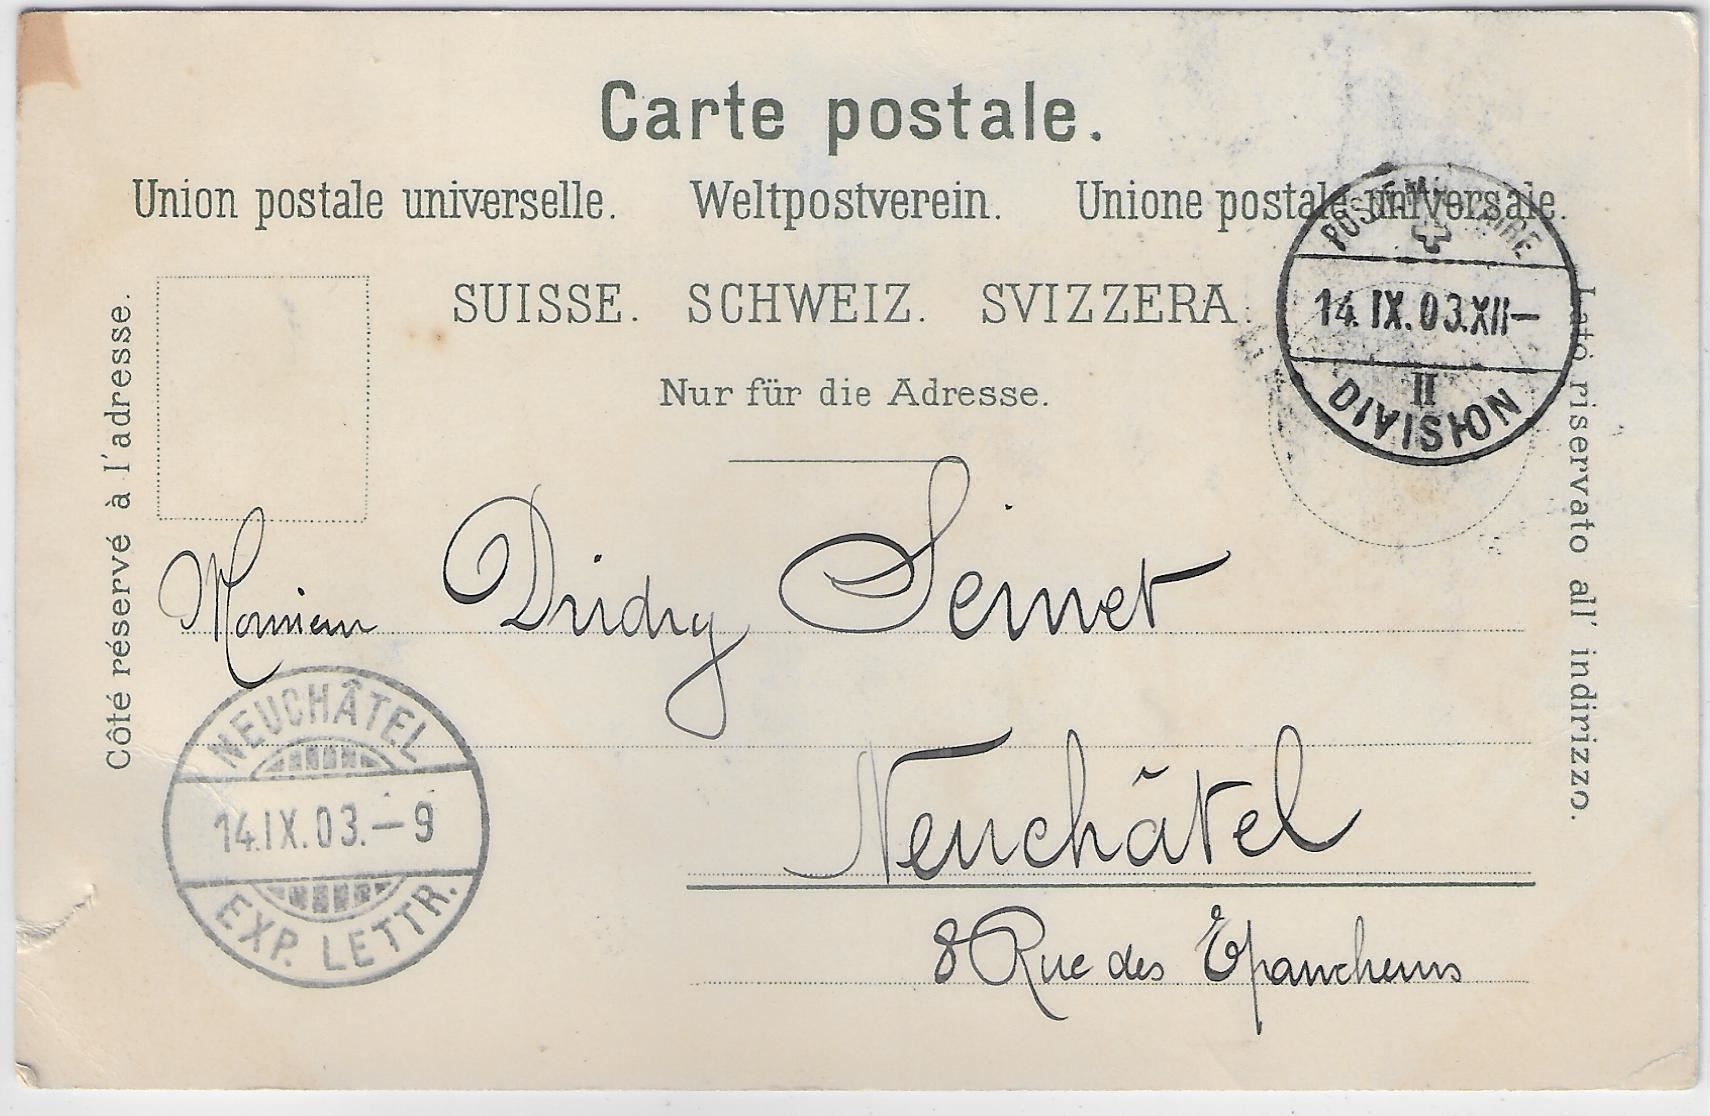 Carte postale.
Union postale universelle. Weltpostverein. Unione postale universale.
SUISSE. SCHWEIZ. SVIZZERA.
Nur für die Adresse.
Côté réservé à l'adresse.
Lato riservato all' indirizzo.
POSTE MILITAIRE
14.IX.03.XII–
II
DIVISION
Monsieur Seinet
Neuchâtel
8 Rue des Epancheurs
NEUCHÂTEL
14.IX.03.–9
EXP. LETTR.